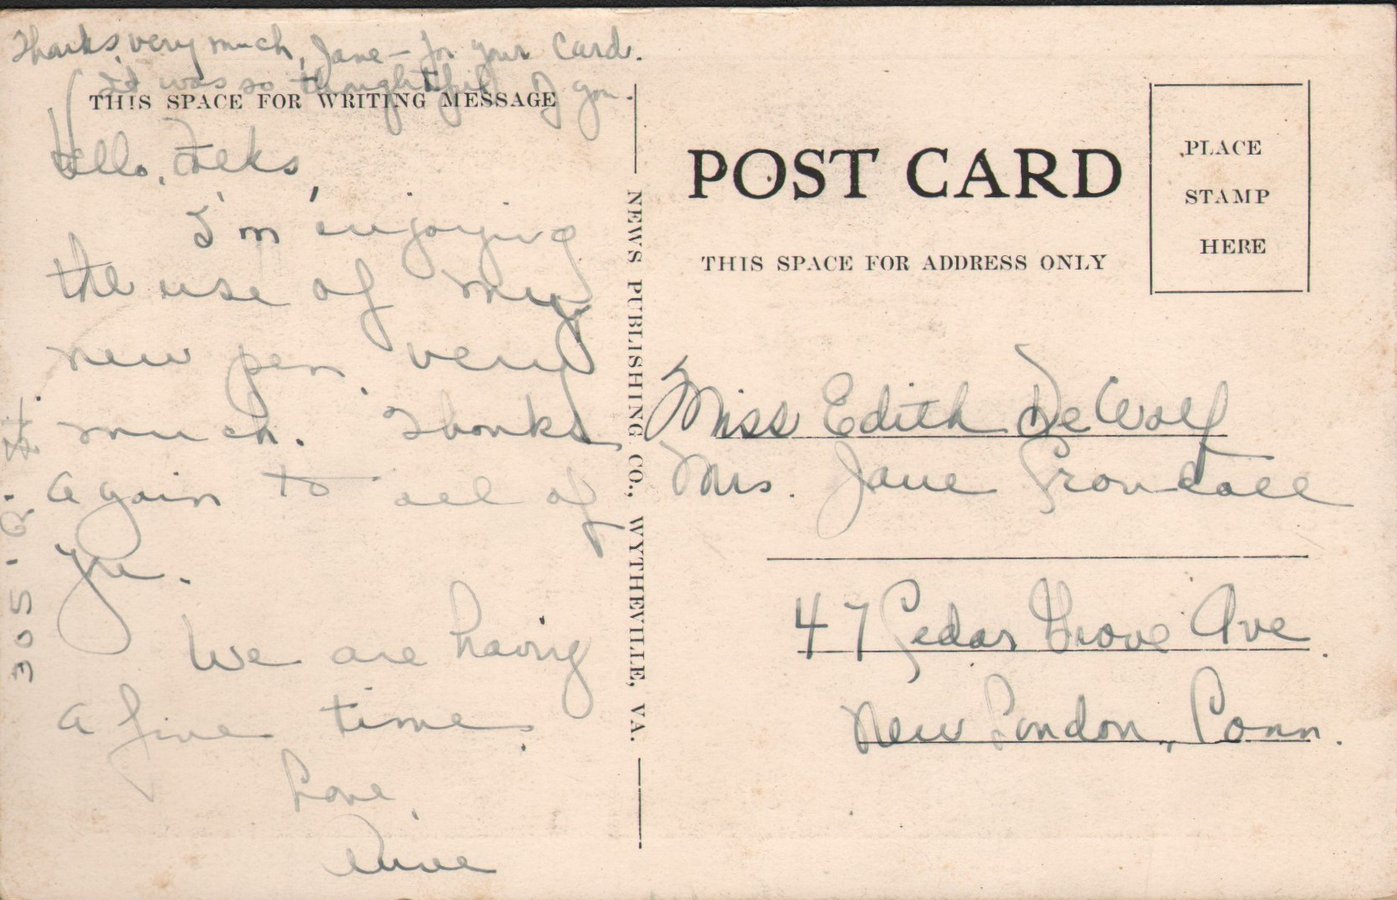 Thanks very much, Jane – for your card.
(It was so thoughtful of you.
THIS SPACE FOR WRITING MESSAGE
Hello, Folks,
I'm enjoying
the use of my
new pen, very
much. Thanks
again to all of
you.
We are having
a fine time.
Love,
NEWS PUBLISHING CO., WYTHEVILLE, VA.
POST CARD
THIS SPACE FOR ADDRESS ONLY
PLACE
STAMP
HERE
Miss Edith DeWolf
Mrs. Jane Crandall
47 Cedar Grove Ave.
New London, Conn.